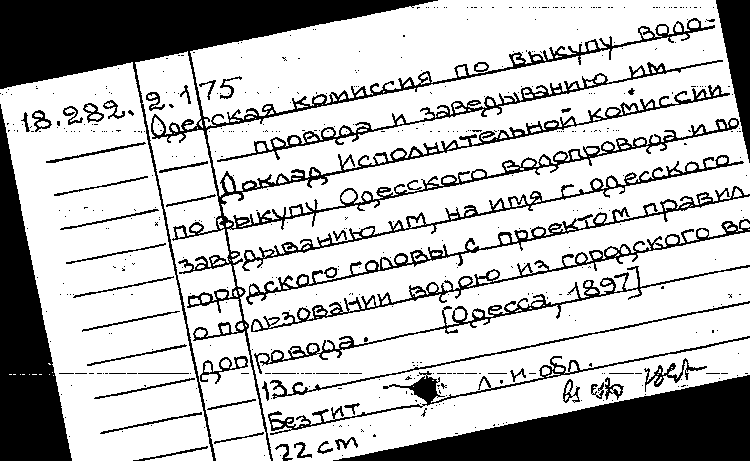 18.282.2.175
Одесская комиссия по выкупу водо-
провода и заведыванию им.
Доклад Исполнительной комиссии
по выкупу Одесского водопровода и по
заведыванию им, на имя г. одесского
городского головы, с проектом правил
о пользовании водою из городского во
допровода. [Одесса, 1897].
13 с.
л. н. обл.
Без тит.
22 cm.